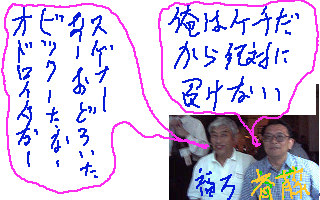 俺はケチだ
から絶対に
負けない
スゲナー
あーおどろいた
ビックーたなー
オドロイタガー
補欠
斉藤